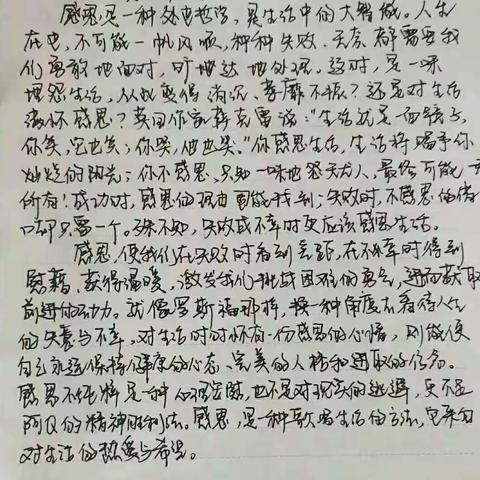 感恩,是一种处世哲学,是生活中的大智慧。人生
在世,不可能一帆风顺,种种失败、无奈都需要我
们勇敢地面对,旷达地处理。这时,是一味
埋怨生活,从此变得消沉、萎靡不振?还是对生活
满怀感恩?英国作家萨克雷说:"生活就是一面镜子,
你笑,它也笑;你哭,他也哭。"你感恩生活,生活将赐予你
灿烂的阳光;你不感恩,只知一味地怨天尤人,最终可能
所有!成功时,感恩的理由固能找到;失败时,不感恩的借
口却只需一个。殊不知,失败或不幸时更应该感恩生活。
感恩,使我们在失败时看到差距,在不幸时得到
慰藉、获得温暖,激发我们挑战困难的勇气,进而获取
前进的动力。就像罗斯福那样,换一种角度去看待人生
的失意与不幸,对生活时时怀有一份感恩的心情,则能使
自己永远保持健康的心态、完美的人格和进取的信念。
感恩不纯粹是一种心理安慰,也不是对现实的逃避,更不是
阿Q的精神胜利法。感恩,是一种歌唱生活的方法,它来自
对生活的热爱与希望。